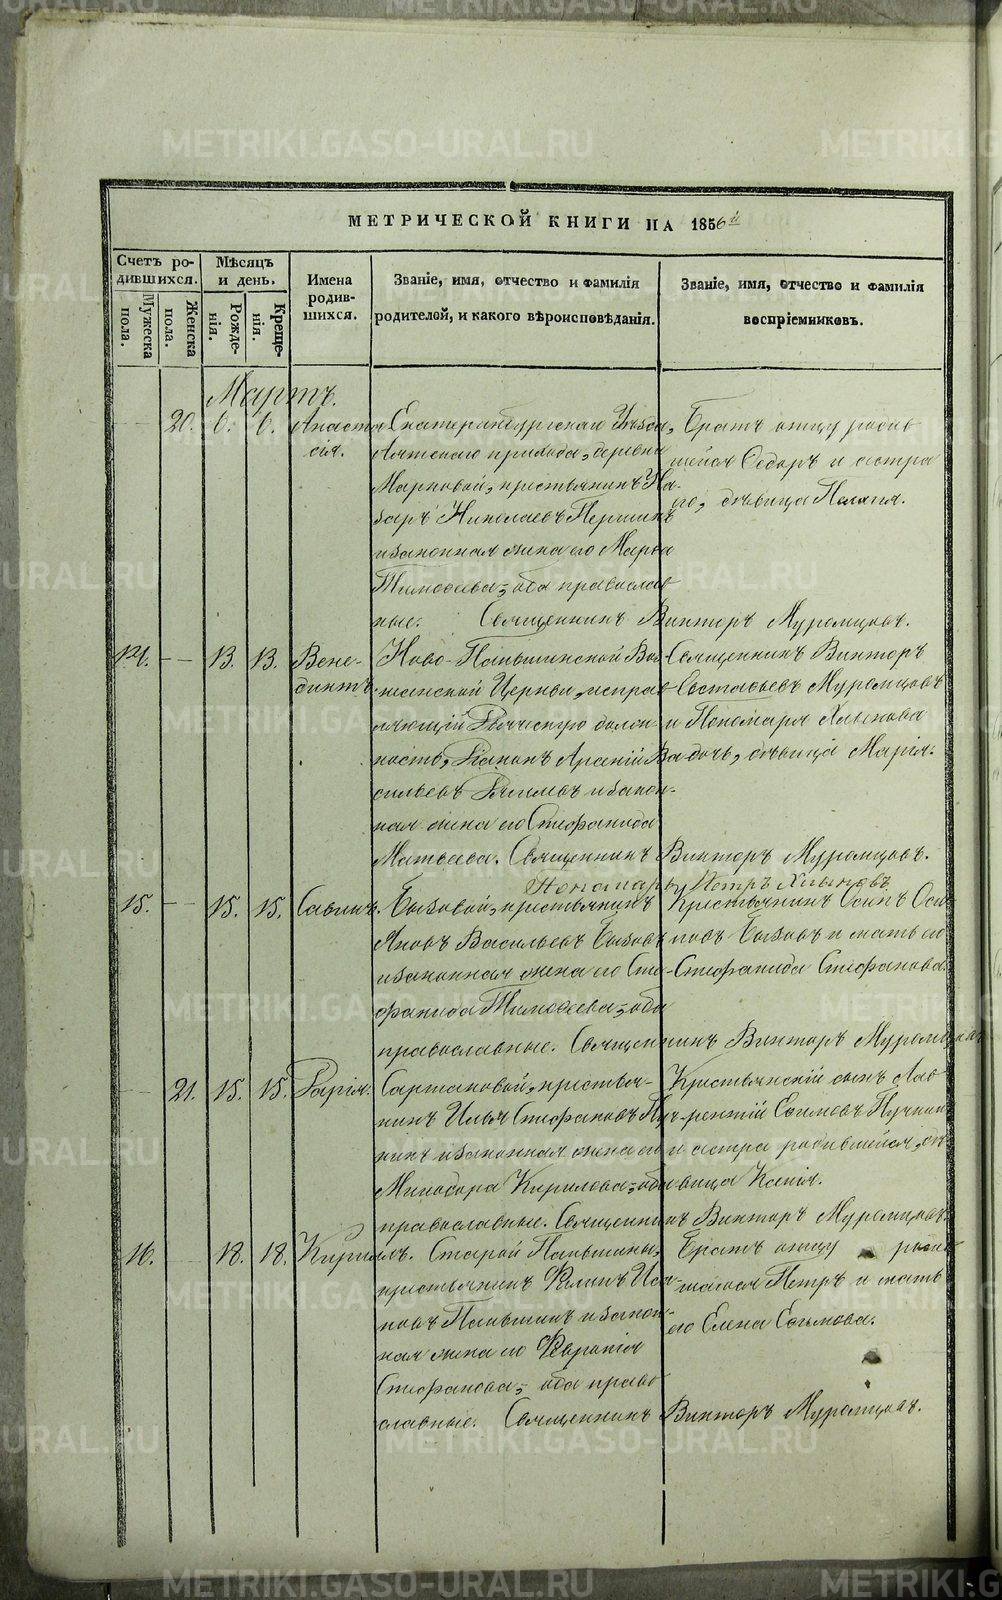 МЕТРИЧЕСКОЙ КНИГИ НА 1856й
Счетъ родившихся.
Мужеска пола.
Женска пола.
Мѣсяцъ и день.
Рожденія.
Крещенія.
Имена родившихся.
Званіе, имя, отчество и фамилія
родителей, и какого вѣроисповѣданія.
Званіе, имя, отчество и фамилія
воспріемниковъ.
Мартъ.
20. 6. 6. Анастасія.
Екатеринбургскаго Уѣзда,
Аятскаго прихода, деревни
Марковой, крестьянинъ На-
заръ Николаевъ Першинъ
и законная жена его Марѳа
Тимоѳеева, оба православ-
ные. Священникъ Викторъ Муромцовъ.
Братъ отцу родив-
шейся Ѳедоръ и сестра
его, дѣвица Пелагія.
14. 13. 13. Венедиктъ.
Ново-Паньшинской Бо-
жанской Церкви, исправ-
ляющій должн-
ность, Діаконъ Арсеній Ва-
сильевъ и закон-
ная жена его Стефанида
Матвѣева. Священникъ Викторъ Муромцовъ.
Пономарь Петръ Хлыновъ
Священникъ Викторъ
Евстафьевъ Муромцовъ
и Пономаря Хлынова
дочь, дѣвица Марія.
15. 15. 15. Савинъ.
Бызовой, крестьянинъ
Яковъ Васильевъ Бызовъ
и законная жена его Сте-
фанида Тимоѳеева, оба
православные. Священникъ Викторъ Муромцовъ
Крестьянинъ Осипъ Оси-
повъ Бызовъ и мать его
Стефанида Стефанова.
21. 15. 15. Дарія.
Сартаковой, крестья-
нинъ Илья Стефановъ Пуч-
кинъ и законная жена его
Минодора Кирилова, оба
православные. Священникъ Викторъ Муромцовъ.
Крестьянскій сынъ Лав-
рентій Ефимовъ Пучкин
и сестра родившейся, дѣ-
вица Ксенія.
16. 18. 18. Кириллъ.
Старой Паньшины,
крестьянинъ Филипъ Иса-
ковъ Паньшинъ и закон-
ная жена его Февронія
Стефанова, оба право-
славные. Священникъ Викторъ Муромцовъ.
Братъ отцу родив-
шагося Петръ и мать
его Елена Ефимова.
METRIKI.GASO-URAL.RU